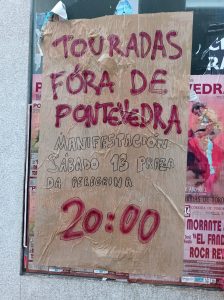 TOURADAS
FÓRA DE
PONTEVEDRA
MANIFESTACIÓN
SÁBADO 13 PRAZA
DA PEREGRINA
20:00
VEDRA
MORANTE
"EL FAND
ROCA REY